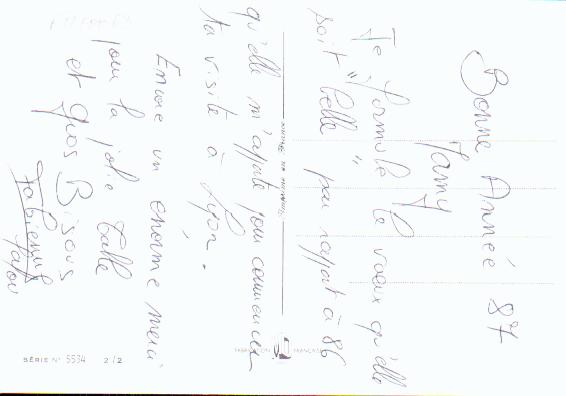 Bonne Année 87
Famy
Je formule le vœux qu'elle
soit "belle" par rapport à 86
qu'elle m'apporte pour commencer
ta visite à Lyon.
Encore un énorme merci
pour la jolie table
et gros Bisous
Fabienne
SÉRIE N° 5554 2/2
FABRICATION FRANÇAISE